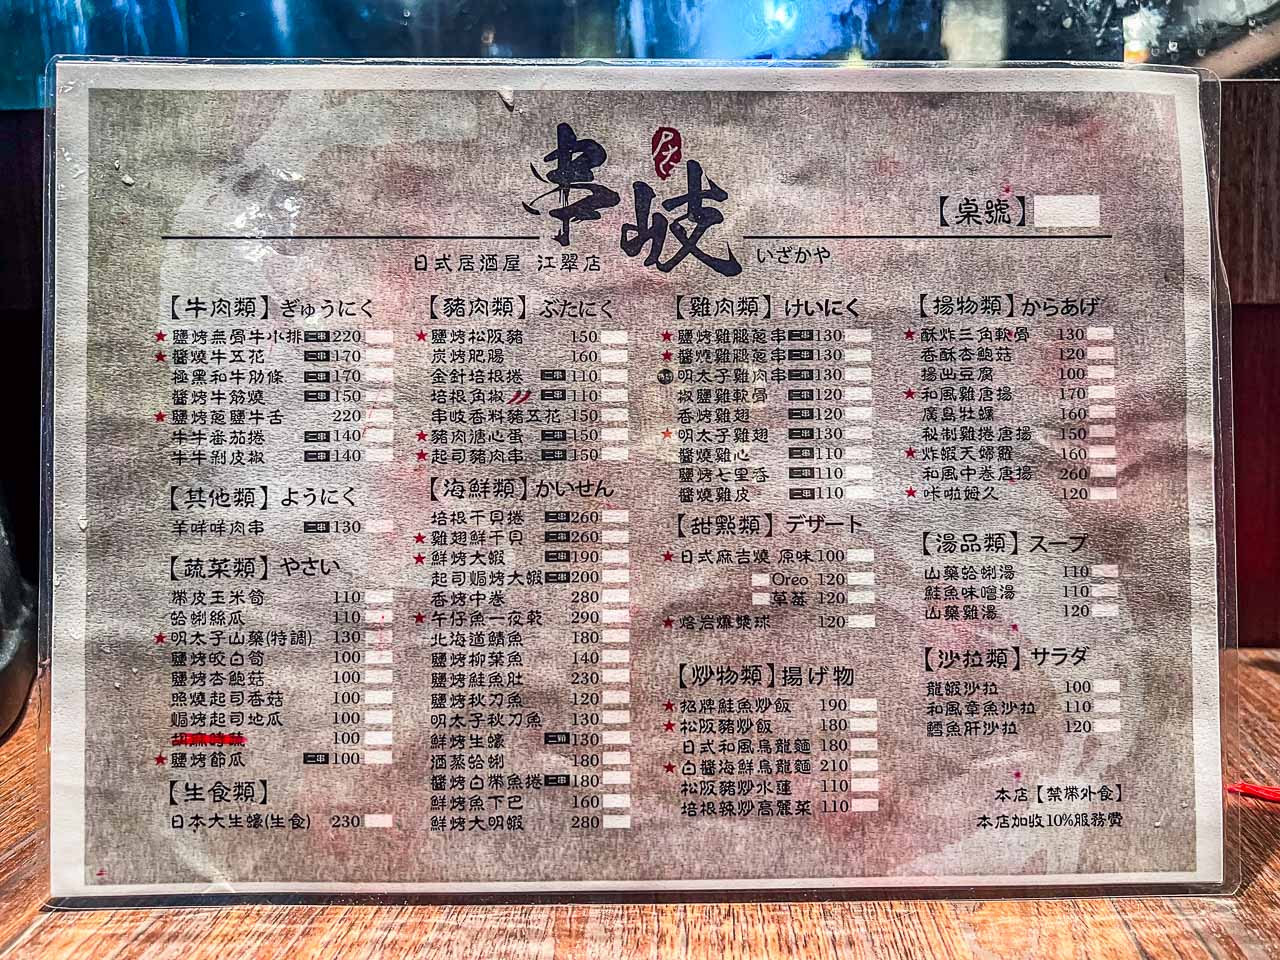 串岐
居
日式居酒屋 江翠店
いざかや
【桌號】
【牛肉類】ぎゅうにく
★鹽烤無骨牛小排 二串 220
★醬燒牛五花 二串 170
極黑和牛肋條 二串 170
醬烤牛筋燒 二串 150
★鹽烤蔥鹽牛舌 220
牛牛番茄捲 二串 140
牛牛剝皮椒 二串 140
【其他類】ようにく
羊咩咩肉串 二串 130
【蔬菜類】やさい
帶皮玉米筍 110
蛤蜊絲瓜 110
★明太子山藥(特調) 130
鹽烤皎白筍 100
鹽烤杏鮑菇 100
照燒起司香菇 100
焗烤起司地瓜 100
100
★鹽烤節瓜 二串 100
【生食類】
日本大生蠔(生食) 230
【豬肉類】ぶたにく
★鹽烤松阪豬 150
炭烤肥腸 160
金針培根捲 二串 110
培根角椒 二串 110
串岐香料豬五花 150
★豬肉溏心蛋 二串 150
★起司豬肉串 二串 150
【海鮮類】かいせん
培根干貝捲 二串 260
★雞翅鮮干貝 二串 260
★鮮烤大蝦 二串 190
起司焗烤大蝦 二串 200
香烤中卷 280
★午仔魚一夜乾 290
北海道鯖魚 180
鹽烤柳葉魚 140
鹽烤鮭魚肚 230
鹽烤秋刀魚 120
明太子秋刀魚 130
鮮烤生蠔 二顆 130
酒蒸蛤蜊 180
醬烤白帶魚捲 二串 180
鮮烤魚下巴 160
鮮烤大明蝦 280
【雞肉類】けいにく
★鹽烤雞腿蔥串 二串 130
★醬燒雞腿蔥串 二串 130
明太子雞肉串 二串 130
椒鹽雞軟骨 二串 120
香烤雞翅 二串 120
★明太子雞翅 二串 130
醬燒雞心 二串 110
鹽烤七里香 二串 110
醬燒雞皮 二串 110
【甜點類】デザート
★日式麻吉燒 原味 100
Oreo 120
草莓 120
★熔岩爆漿球 120
【炒物類】揚げ物
★招牌鮭魚炒飯 190
★松阪豬炒飯 180
日式和風烏龍麵 180
★白醬海鮮烏龍麵 210
松阪豬炒水蓮 110
培根辣炒高麗菜 110
【揚物類】からあげ
★酥炸三角軟骨 130
香酥杏鮑菇 120
揚出豆腐 100
★和風雞唐揚 170
廣島牡蠣 160
秘制雞捲唐揚 150
★炸蝦天婦羅 160
和風中卷唐揚 260
★咔啦姆久 120
【湯品類】スープ
山藥蛤蜊湯 110
鮭魚味噌湯 110
山藥雞湯 120
【沙拉類】サラダ
龍蝦沙拉 100
和風章魚沙拉 110
鱈魚肝沙拉 120
本店【禁帶外食】
本店加收10%服務費